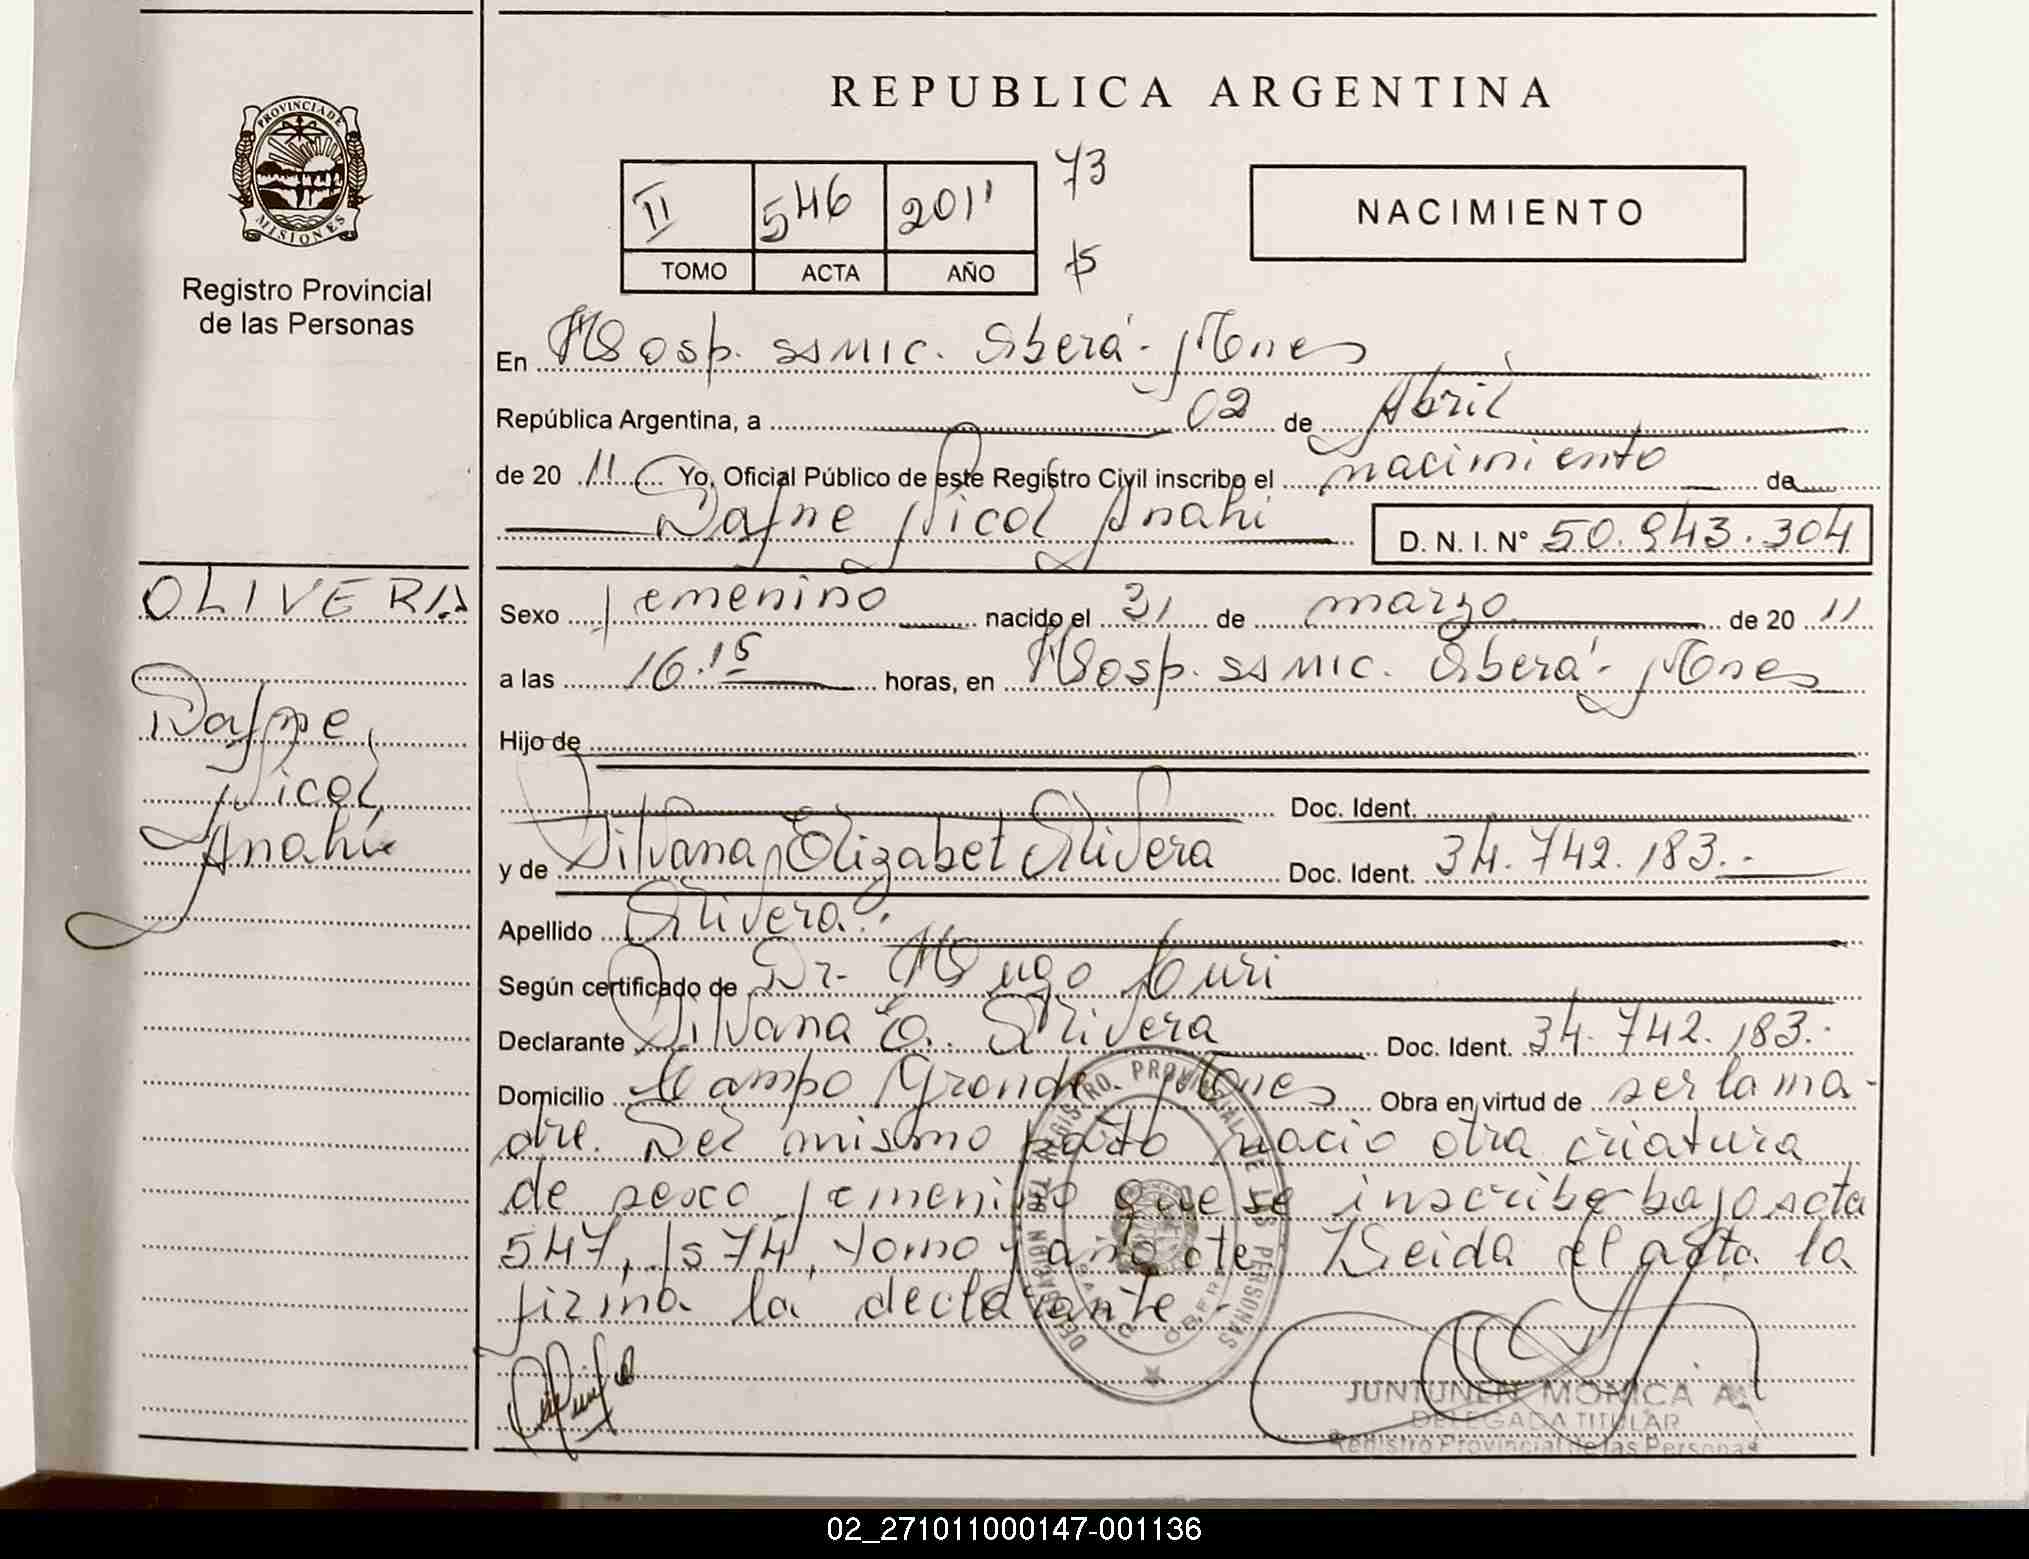 REPUBLICA ARGENTINA
PROVINCIA DE MISIONES
Registro Provincial
de las Personas
II 546 2011 73
TOMO ACTA AÑO
NACIMIENTO
En Hosp. SSMIC. Oberá - Mnes
República Argentina, a 02 de Abril
de 20 11 Yo, Oficial Público de este Registro Civil inscribo el nacimiento de
Dafne Nicol Anahi D. N. I. N° 50.943.304
OLIVERA
Dafne
Nicol
Anahi
Sexo femenino nacido el 31 de marzo de 20 11
a las 16.15 horas, en Hosp. SSMIC. Oberá - Mnes
Hijo de
Doc. Ident.
y de Silvana Elizabet Olivera Doc. Ident. 34.742.183.-
Apellido Olivera.
Según certificado de Dr. Hugo
Declarante Silvana E. Olivera Doc. Ident. 34.742.183.
Domicilio Campo Grande Mnes Obra en virtud de ser la ma-
dre. Del mismo parto nacio otra criatura
de sexo femenino que se inscribe bajo acta
547, fs 74, tomo y año cte. Leida el acta la
firma la declarante.
DELEGACION DEL REGISTRO PROVINCIAL DE LAS PERSONAS
OBERA
JUNTUNEN MONICA A.
DELEGADA TITULAR
Registro Provincial de las Personas
02_271011000147-001136